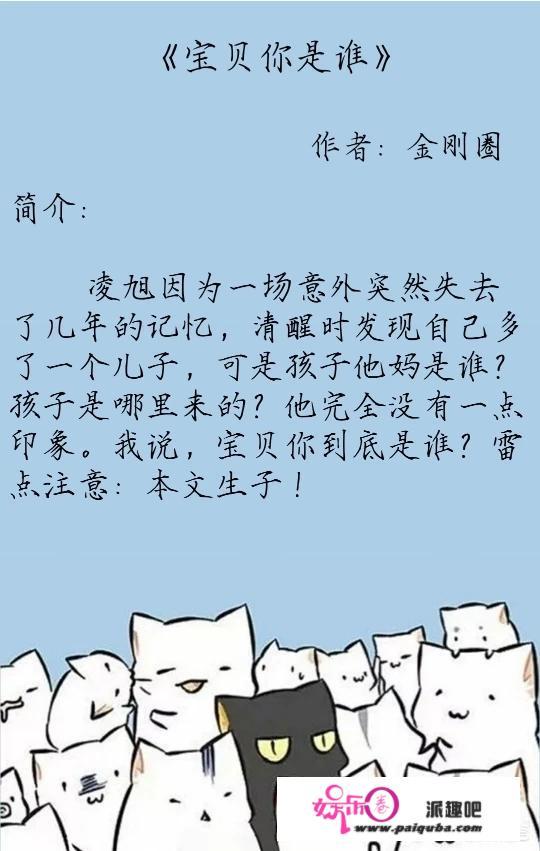 《宝贝你是谁》
作者：金刚圈
简介：
凌旭因为一场意外突然失去
了几年的记忆，清醒时发现自己多
了一个儿子，可是孩子他妈是谁？
孩子是哪里来的？他完全没有一点
印象。我说，宝贝你到底是谁？雷
点注意：本文生子！
娱乐卷 派趣吧
www.paiquba.com